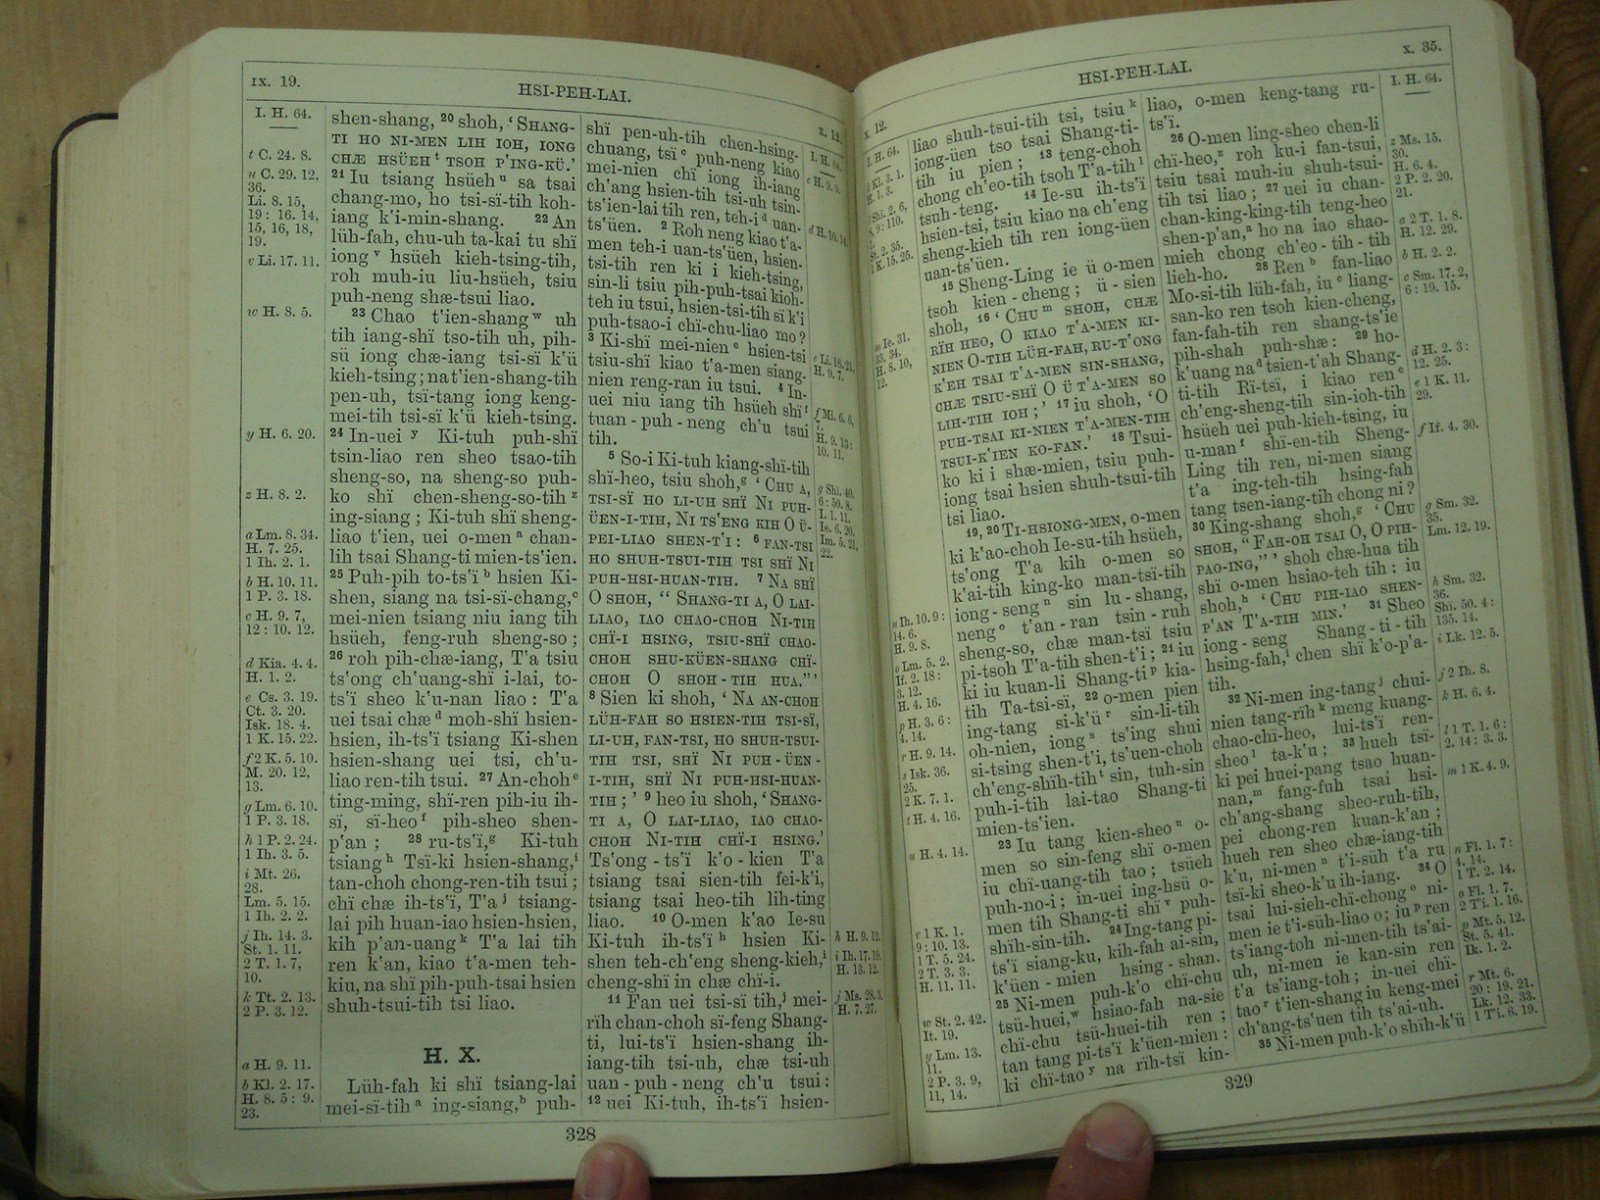 IX. 19.
HSI-PEH-LAI.
X. 12.
I. H. 64.
t C. 24. 8.
u C. 29. 12,
36.
Li. 8. 15,
19: 16. 14,
15, 16, 18,
19.
v Li. 17. 11.
w H. 8. 5.
y H. 6. 20.
z H. 8. 2.
a Lm. 8. 34.
H. 7. 25.
1 Ih. 2. 1.
b H. 10. 11.
1 P. 3. 18.
c H. 9. 7,
12: 10. 12.
d Kia. 4. 4.
H. 1. 2.
e Cs. 3. 19.
Ct. 3. 20.
Isk. 18. 4.
1 K. 15. 22.
f 2 K. 5. 10.
M. 20. 12,
13.
g Lm. 6. 10.
1 P. 3. 18.
h 1 P. 2. 24.
1 Ih. 3. 5.
i Mt. 26.
28.
Lm. 5. 15.
1 Ih. 2. 2.
j Ih. 14. 3.
St. 1. 11.
2 T. 1. 7,
10.
k Tt. 2. 13.
2 P. 3. 12.
a H. 9. 11.
b Kl. 2. 17.
H. 8. 5: 9.
23.
shen-shang, 20 shoh, ‘ SHANG-
TI HO NI-MEN LIH IOH, IONG
CHÆ HSÜEH t TSOH P'ING-KÜ.’
21 Iu tsiang hsüeh u sa tsai
chang-mo, ho tsi-sï-tih koh-
iang k'i-min-shang. 22 An
lüh-fah, chu-uh ta-kai tu shï
iong v hsüeh kieh-tsing-tih,
roh muh-iu liu-hsüeh, tsiu
puh-neng shæ-tsui liao.
23 Chao t'ien-shang w uh
tih iang-shï tso-tih uh, pih-
sü iong chæ-iang tsi-sï k'ü
kieh-tsing; na t'ien-shang-tih
pen-uh, tsï-tang iong keng-
mei-tih tsi-sï k'ü kieh-tsing.
24 In-uei y Ki-tuh puh-shï
tsin-liao ren sheo tsao-tih
sheng-so, na sheng-so puh-
ko shï chen-sheng-so-tih z
ing-siang; Ki-tuh shï sheng-
liao t'ien, uei o-men a chan-
lih tsai Shang-ti mien-ts'ien.
25 Puh-pih to-ts'ï b hsien Ki-
shen, siang na tsi-sï-chang, c
mei-nien tsiang niu iang tih
hsüeh, feng-ruh sheng-so;
26 roh pih-chæ-iang, T'a tsiu
ts'ong ch'uang-shï i-lai, to-
ts'ï sheo k'u-nan liao: T'a
uei tsai chæ d moh-shï hsien-
hsien, ih-ts'ï tsiang Ki-shen
hsien-shang uei tsi, ch'u-
liao ren-tih tsui. 27 An-choh e
ting-ming, shï-ren pih-iu ih-
sï, sï-heo f pih-sheo shen-
p'an; 28 ru-ts'ï, g Ki-tuh
tsiang h Tsï-ki hsien-shang, i
tan-choh chong-ren-tih tsui;
chï chæ ih-ts'ï, T'a j tsiang-
lai pih huan-iao hsien-hsien,
kih p'an-uang k T'a lai tih
ren k'an, kiao t'a-men teh-
kiu, na shï pih-puh-tsai hsien
shuh-tsui-tih tsi liao.
H. X.
Lüh-fah ki shï tsiang-lai
mei-sï-tih a ing-siang, b puh-
shï pen-uh-tih chen-hsing-
chuang, tsï c puh-neng kiao
mei-nien chï iong ih-iang
ch'ang hsien-tih tsi-uh tsin-
ts'ien-lai tih ren, teh-i d uan-
ts'üen. 2 Roh neng kiao t'a-
men teh-i uan-ts'üen, hsien-
tsi-tih ren ki i kieh-tsing,
sin-li tsiu pih-puh-tsai kioh-
teh iu tsui, hsien-tsi-tih sï k'i
puh-tsao-i chï-chu-liao mo?
3 Ki-shï mei-nien e hsien-tsi
tsiu-shï kiao t'a-men siang-
nien reng-ran iu tsui. 4 In-
uei niu iang tih hsüeh shï f
tuan-puh-neng ch'u tsui
tih.
5 So-i Ki-tuh kiang-shï-tih
shï-heo, tsiu shoh, g ‘ CHU A,
TSI-SÏ HO LI-UH SHÏ NI PUH-
ÜEN-I-TIH, NI TS'ENG KIH O Ü-
PEI-LIAO SHEN-T'I: 6 FAN-TSI
HO SHUH-TSUI-TIH TSI SHÏ NI
PUH-HSI-HUAN-TIH. 7 NA SHÏ
O SHOH, “ SHANG-TI A, O LAI-
LIAO, IAO CHAO-CHOH NI-TIH
CHÏ-I HSING, TSIU-SHÏ CHAO-
CHOH SHU-KÜEN-SHANG CHÏ-
CHOH O SHOH-TIH HUA.” ’
8 Sien ki shoh, ‘ NA AN-CHOH
LÜH-FAH SO HSIEN-TIH TSI-SÏ,
LI-UH, FAN-TSI, HO SHUH-TSUI-
TIH TSI, SHÏ NI PUH-ÜEN-
I-TIH, SHÏ NI PUH-HSI-HUAN-
TIH;’ 9 heo iu shoh, ‘ SHANG-
TI A, O LAI-LIAO, IAO CHAO-
CHOH NI-TIH CHÏ-I HSING.’
Ts'ong-ts'ï k'o-kien T'a
tsiang tsai sien-tih fei-k'i,
tsiang tsai heo-tih lih-ting
liao. 10 O-men k'ao Ie-su
Ki-tuh ih-ts'ï h hsien Ki-
shen teh-ch'eng sheng-kieh, i
cheng-shï in chæ chï-i.
11 Fan uei tsi-sï tih, j mei-
rïh chan-choh sï-feng Shang-
ti, lui-ts'ï hsien-shang ih-
iang-tih tsi-uh, chæ tsi-uh
uan-puh-neng ch'u tsui:
12 uei Ki-tuh, ih-ts'ï hsien-
I. H. 64.
c H. 9. 9.
d H. 10. 14.
e Li. 16. 21.
H. 9. 7.
f Mi. 6. 6,
H. 9. 13:
10. 11.
g Shi. 40.
6: 50. 8.
I. 1. 11.
Ie. 6. 20.
Im. 5. 21,
22.
h H. 9. 12.
i Ih. 17. 19.
H. 13. 12.
j Ms. 28. 3.
H. 7. 27.
328
X. 12.
HSI-PEH-LAI.
X. 35.
I. H. 64.
Kl. 3. 1.
H. 1. 3.
Shi. 2. 6,
St. 2. 35.
1 K. 15. 25.
m Ie. 31.
33, 34.
H. 8. 10,
12.
n Ih. 10. 9:
14. 6.
H. 9. 8.
o Lm. 5. 2.
If. 2. 18:
3. 12.
H. 4. 16.
p H. 3. 6:
4. 14.
r H. 9. 14.
s Isk. 36.
25.
2 K. 7. 1.
t H. 4. 16.
u H. 4. 14.
v 1 K. 1.
9: 10. 13.
1 T. 5. 24.
2 T. 3. 3.
H. 11. 11.
w St. 2. 42.
It. 19.
y Lm. 13.
11.
2 P. 3. 9,
11, 14.
liao shuh-tsui-tih tsi, tsiu k
iong-üen tso tsai Shang-ti-
tih iu pien; 13 teng-choh
chong ch'eo-tih tsoh T'a-tih l
tsuh-teng. 14 Ie-su ih-ts'ï
hsien-tsi, tsiu kiao na ch'eng
sheng-kieh tih ren iong-üen
uan-ts'üen.
15 Sheng-Ling ie ü o-men
tsoh kien-cheng; ü-sien
shoh, 16 ‘ CHU m SHOH, CHÆ
RÏH HEO, O KIAO T'A-MEN KI-
NIEN O-TIH LÜH-FAH, RU-T'ONG
K'EH TSAI T'A-MEN SIN-SHANG,
CHÆ TSIU-SHÏ O Ü T'A-MEN SO
LIH-TIH IOH;’ 17 iu shoh, ‘ O
PUH-TSAI KI-NIEN T'A-MEN-TIH
TSUI-K'IEN KO-FAN.’ 18 Tsui-
ko ki i shæ-mien, tsiu puh-
iong tsai hsien shuh-tsui-tih
tsi liao.
19, 20 TI-HSIONG-MEN, o-men
ki k'ao-choh Ie-su-tih hsüeh,
ts'ong T'a kih o-men so
k'ai-tih king-ko man-tsï-tih
iong-seng n sin lu-shang,
neng o t'an-ran tsin-ruh
sheng-so, chæ man-tsï tsiu
pi-tsoh T'a-tih shen-t'i; 21 iu
ki iu kuan-li Shang-ti p kia-
tih Ta-tsi-sï, 22 o-men pien
ing-tang si-k'ü r sin-li-tih
oh-nien, iong s ts'ing shui
si-tsing shen-t'i, ts'uen-choh
ch'eng-shïh-tih t sin, tuh-sin
puh-i-tih lai-tao Shang-ti
mien-ts'ien.
23 Iu tang kien-sheo u o-
men so sin-feng shï o-men
iu chï-uang-tih tao; tsüeh
puh-no-i; in-uei ing-hsü o-
men tih Shang-ti shï v puh-
shïh-sin-tih. 24 Ing-tang pi-
ts'ï siang-ku, kih-fah ai-sin,
k'üen-mien hsing-shan.
25 Ni-men puh-k'o chï-chu
tsü-huei, w hsiao-fah na-sie
chï-chu tsü-huei-tih ren;
tan tang pi-ts'ï k'üen-mien:
ki chï-tao y na rïh-tsï kin-
liao, o-men keng-tang ru-
ts'ï.
26 O-men ling-sheo chen-li
chï-heo, z roh ku-i fan-tsui,
tsiu tsai muh-iu shuh-tsui-
tih tsi liao; 27 uei iu chan-
chan-king-king-tih teng-heo
shen-p'an, a ho na iao shao-
mieh chong ch'eo-tih-tih
lieh-ho. 28 Ren b fan-liao
Mo-si-tih lüh-fah, iu c liang-
san-ko ren tsoh kien-cheng,
fan-fah-tih ren shang-ts'ie
pih-shah puh-shæ: 29 ho-
k'uang na d tsien-t'ah Shang-
ti-tih Rï-tsï, i kiao ren e
ch'eng-sheng-tih sin-ioh-tih
hsüeh uei puh-kieh-tsing, iu
u-man f shï-en-tih Sheng-
Ling tih ren, ni-men siang
t'a ing-teh-tih hsing-fah
tang tsen-iang-tih chong ni?
30 King-shang shoh, g ‘ CHU
SHOH, “ FAH-OH TSAI O, O PIH-
PAO-ING,” ’ shoh chæ-hua tih
shï o-men hsiao-teh tih: iu
shoh, h ‘ CHU PIH-IAO SHEN-
P'AN T'A-TIH MIN.’ 31 Sheo
iong-seng Shang-ti-tih
hsing-fah, i chen shï k'o-p'a-
tih.
32 Ni-men ing-tang j chui-
nien tang-rïh k meng kuang-
chao-chï-heo, lui-ts'ï ren-
sheo l ta-k'u; 33 hueh tsï-
ki pei huei-pang tsao huan-
nan, m fang-fuh tsai hsi-
ch'ang-shang sheo-ruh-tih,
pei chong-ren kuan-k'an;
hueh ren sheo chæ-iang-tih
k'u, ni-men n t'i-süh t'a ru
tsï-ki sheo-k'u ih-iang. 34 O
tsai lui-sieh-chï-chong o ni-
men ie t'i-süh-liao o; iu p ren
ts'iang-toh ni-men-tih ts'ai-
uh, ni-men ie kan-sin ren
t'a ts'iang-toh; in-uei chï-
tao r t'ien-shang iu keng-mei
ch'ang-ts'uen tih ts'ai-uh.
35 Ni-men puh-k'o shïh-k'ü
I. H. 64.
z Ms. 15.
30.
H. 6. 4.
2 P. 2. 20.
21.
a 2 T. 1. 8.
H. 12. 29.
b H. 2. 2.
c Sm. 17. 2,
6: 19. 15.
d H. 2. 3:
12. 25.
e 1 K. 11.
29.
f If. 4. 30.
g Sm. 32.
35.
Lm. 12. 19.
h Sm. 32.
36.
Shi. 50. 4:
135. 14.
i Lk. 12. 5.
j 2 Ih. 8.
k H. 6. 4.
l 1 T. 1. 6:
2. 14: 3. 3.
m 1 K. 4. 9.
n Fl. 1. 7:
4. 14.
1 T. 2. 14.
o Fl. 1. 7.
2 Ti. 1. 16.
p Mt. 5. 12.
St. 5. 41.
Ik. 1. 2.
r Mt. 6.
20: 19. 21.
Lk. 12. 33.
1 Ti. 6. 19.
329